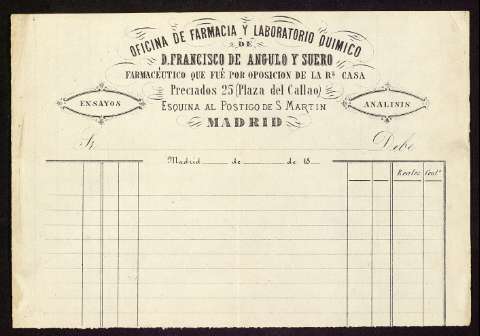 OFICINA DE FARMACIA Y LABORATORIO QUIMICO
DE
D. FRANCISCO DE ANGULO Y SUERO
FARMACÉUTICO QUE FUÉ POR OPOSICION DE LA Rl. CASA
Preciados 25 (Plaza del Callao)
ENSAYOS
ESQUINA AL POSTIGO DE S. MARTIN
ANALISIS
MADRID
Sr.
Debe
Madrid de de 18
Reales Cents.